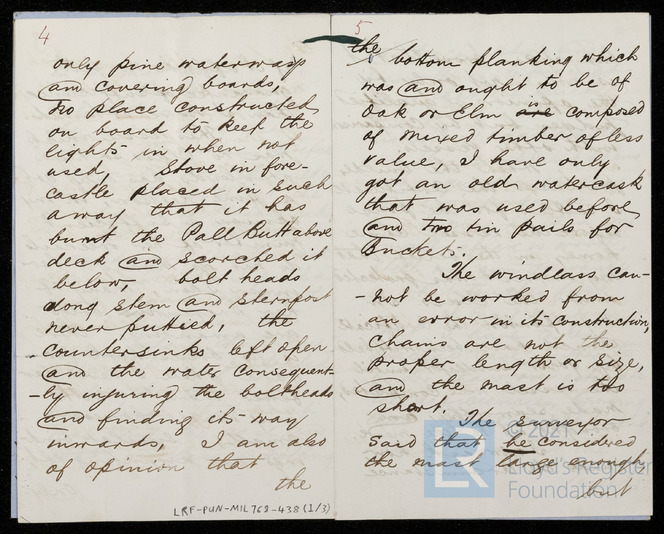 4
only pine waterways
and covering boards,
no place constructed
on board to keep the
lights in when not
used, Stove in fore-
castle placed in such
away that it has
burnt the Pall Butt above
deck and scorched it
below, bolt heads
along stem and sternpost
never puttied, the
Countersinks left open
and the water Consequent-
-ly injuring the boltheads
and finding its way
inwards, I am also
of opinion that
the
LRF-PUN-MIL762-438 (1/3)
5
the bottom planking which
was and ought to be of
Oak or Elm are is composed
of mixed timber of less
value, I have only
got an old watercask
that was used before
and two tin pails for
Buckets.
The windlass can-
-not be worked from
an error in its construction,
Chains are not the
proper length or size,
and the mast is too
short.
The Surveyor
said that he considered
the mast large enough
but
© 2021
LR
Lloyd's Register
Foundation